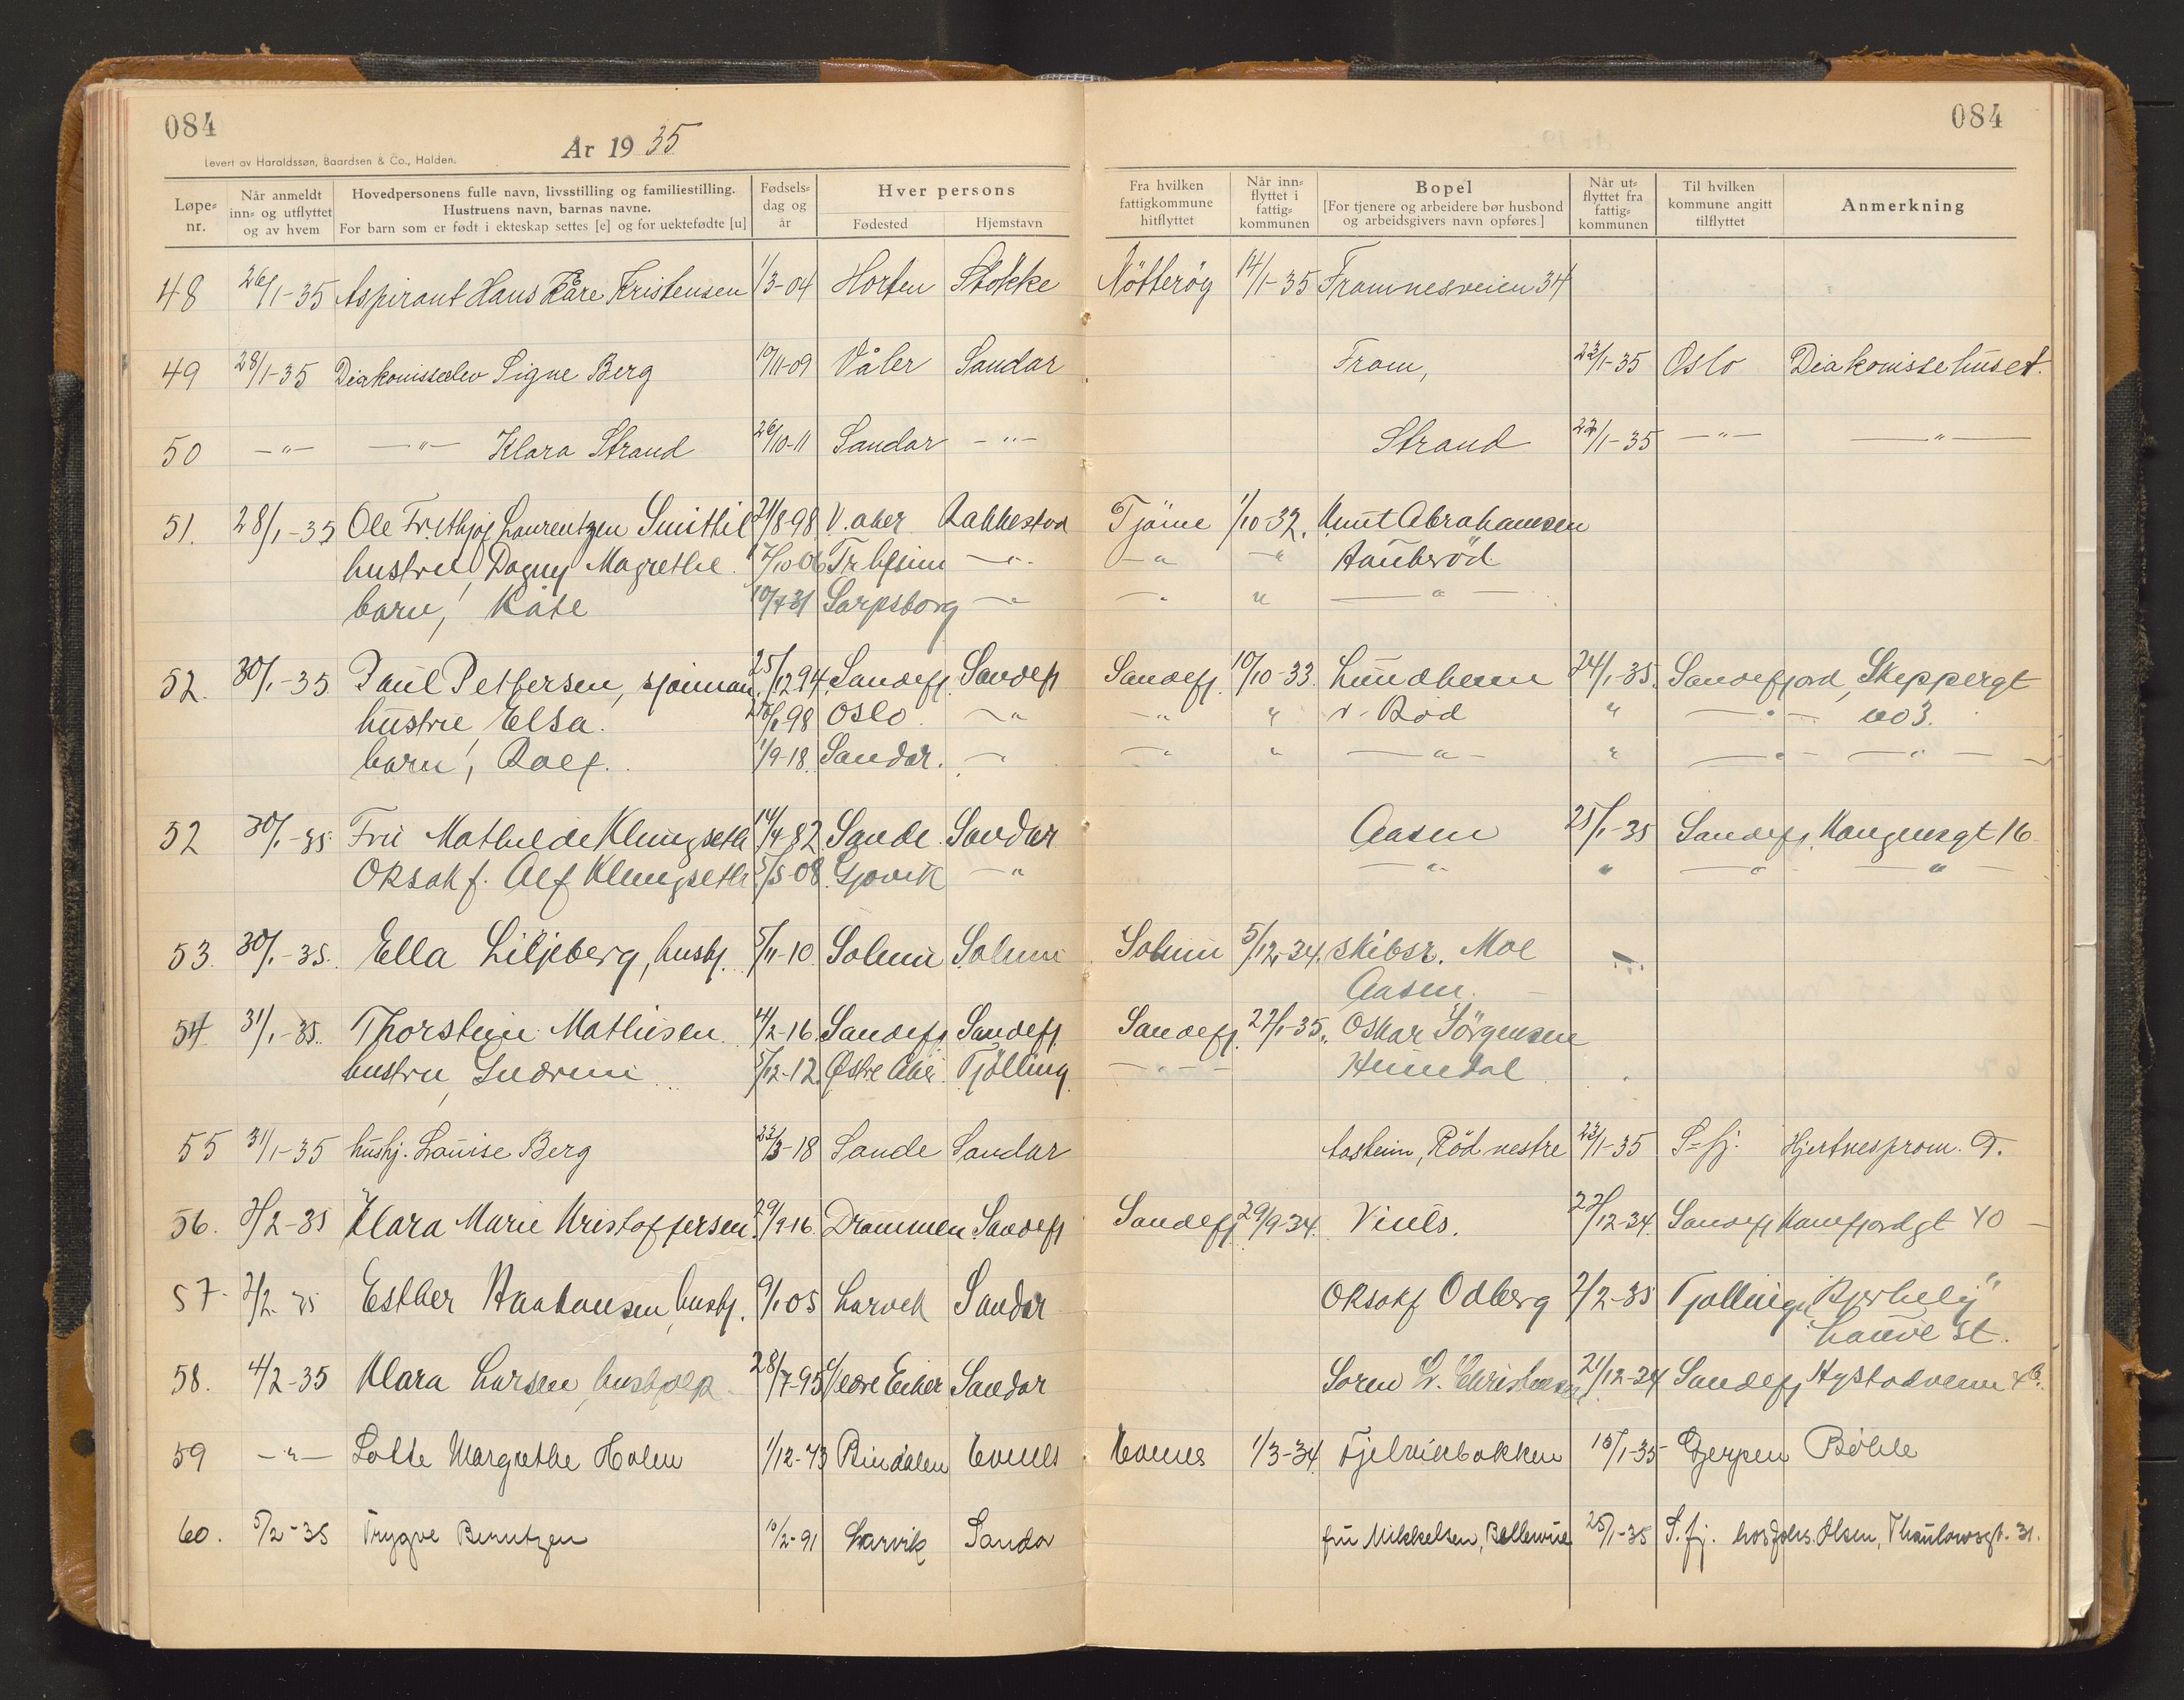 084
084
År 19 35
Levert av Haraldssøn, Baardsen & Co., Halden.
Løpe-nr. Når anmeldt inn- og utflyttet og av hvem Hovedpersonens fulle navn, livsstilling og familiestilling. Hustruens navn, barnas navne. For barn som er født i ekteskap settes [e] og for uektefødte [u] Fødsels-dag og år Hver persons Fødested Hjemstavn Fra hvilken fattigkommune hitflyttet Når inn-flyttet i fattig-kommunen Bopel [For tjenere og arbeidere bør husbond og arbeidsgivers navn opføres.] Når ut-flyttet fra fattig-kommunen Til hvilken kommune angitt tilflyttet Anmerkning
48 26/1-35 Aspirant Hans Kåre Kristensen 1/3-04 Horten Stokke Nötteröy 14/1-35 Framnesveien 34
49 28/1-35 Diakonisseelev Signe Berg 19/11-09 Våler Sandar Fram, 23/1-35 Oslo Diakonissehuset.
50 -"- -"- Klara Strand 26/10-11 Sandar -"- Strand 22/1-35 -"- -"-
51. 28/1-35 Ole Frithjof Laurentzen 21/8-98 V. aker Rakkestad Tjöme 1/10-32. Knut Abrahamsen
hustru Dagny Magrethe 7/10-06 -"- -"- " Haukeröd
barn, Kåte 10/7-31 Sarpsborg -"- -"- " -"-
52. 30/1-35 Paul Pettersen, sjömann. 25/12 94 Sandefj. Sandefj Sandefj. 10/10-33. Lundheim 24/1-35. Sandefjord, Skippergt
hustru Elsa. Oslo -"- -"- " v. Rod " -"- no 3.
barn, Rolf. 1/9-18. Sandar. -"- -"- " -"- " -"- -"-
52 30/1-35. Fru Mathilde Klingseth 14/4-82 Sande Sandar Aasen 25/1-35 Sandefj. Kongensgt 16
Oksahf. Alf Klingseth 5/5-08. Gjøvik -"- -"- " -"- -"-
53. 30/1-35. Ella Liljeberg, hushj. 5/11-10. Solum Solum Solum 5/12-34. skibsr. Moe
Aasen.
54 31/1-35. Thorstein Mathisen 4/2-16. Sandefj. Sandefj Sandefj. 22/1-35. Oskar Jörgensen
hustru, Gudrun 5/12-12. Østre Aker Tjölling -"- Hundal
55 31/1-35 hushj. Louise Berg 23/3-18 Sande Sandar Aasheim, Röd nestre 23/1-35 S-fj. Hjertnesprom. 9.
56. 2/2-35 Klara Marie Kristoffersen 29/9-16. Drammen Sandefj Sandefj. 29/9-34. Vints. 22/12-34. Sandefj Kamfjordgt 40
57. 2/2-35 Esther hushj. 9/1 05 Larvik Sandar Oksahf Odberg 2/2-35 Tjölling "Bjerkely"
Lauve st.
58. 4/2-35 Klara Larsen, hushjelp 28/7-95 Nedre Eiker Sandar Soren L. Christensen 21/12-34 Sandefj Hystadveien
59 -"- Lotte Margrethe Holm 1/12-73 Bindalen Evenes 1/3-34 Fjelvikbakken 15/1-35 Gjerpen Böhle
60. 5/2-35 Trygve Berntzen 10/2-91 Larvik Sandar fru Mikkelsen, Bellevue 25/1-35 S. fj. hos Johs. Olsen, Thaulowsgt. 31.